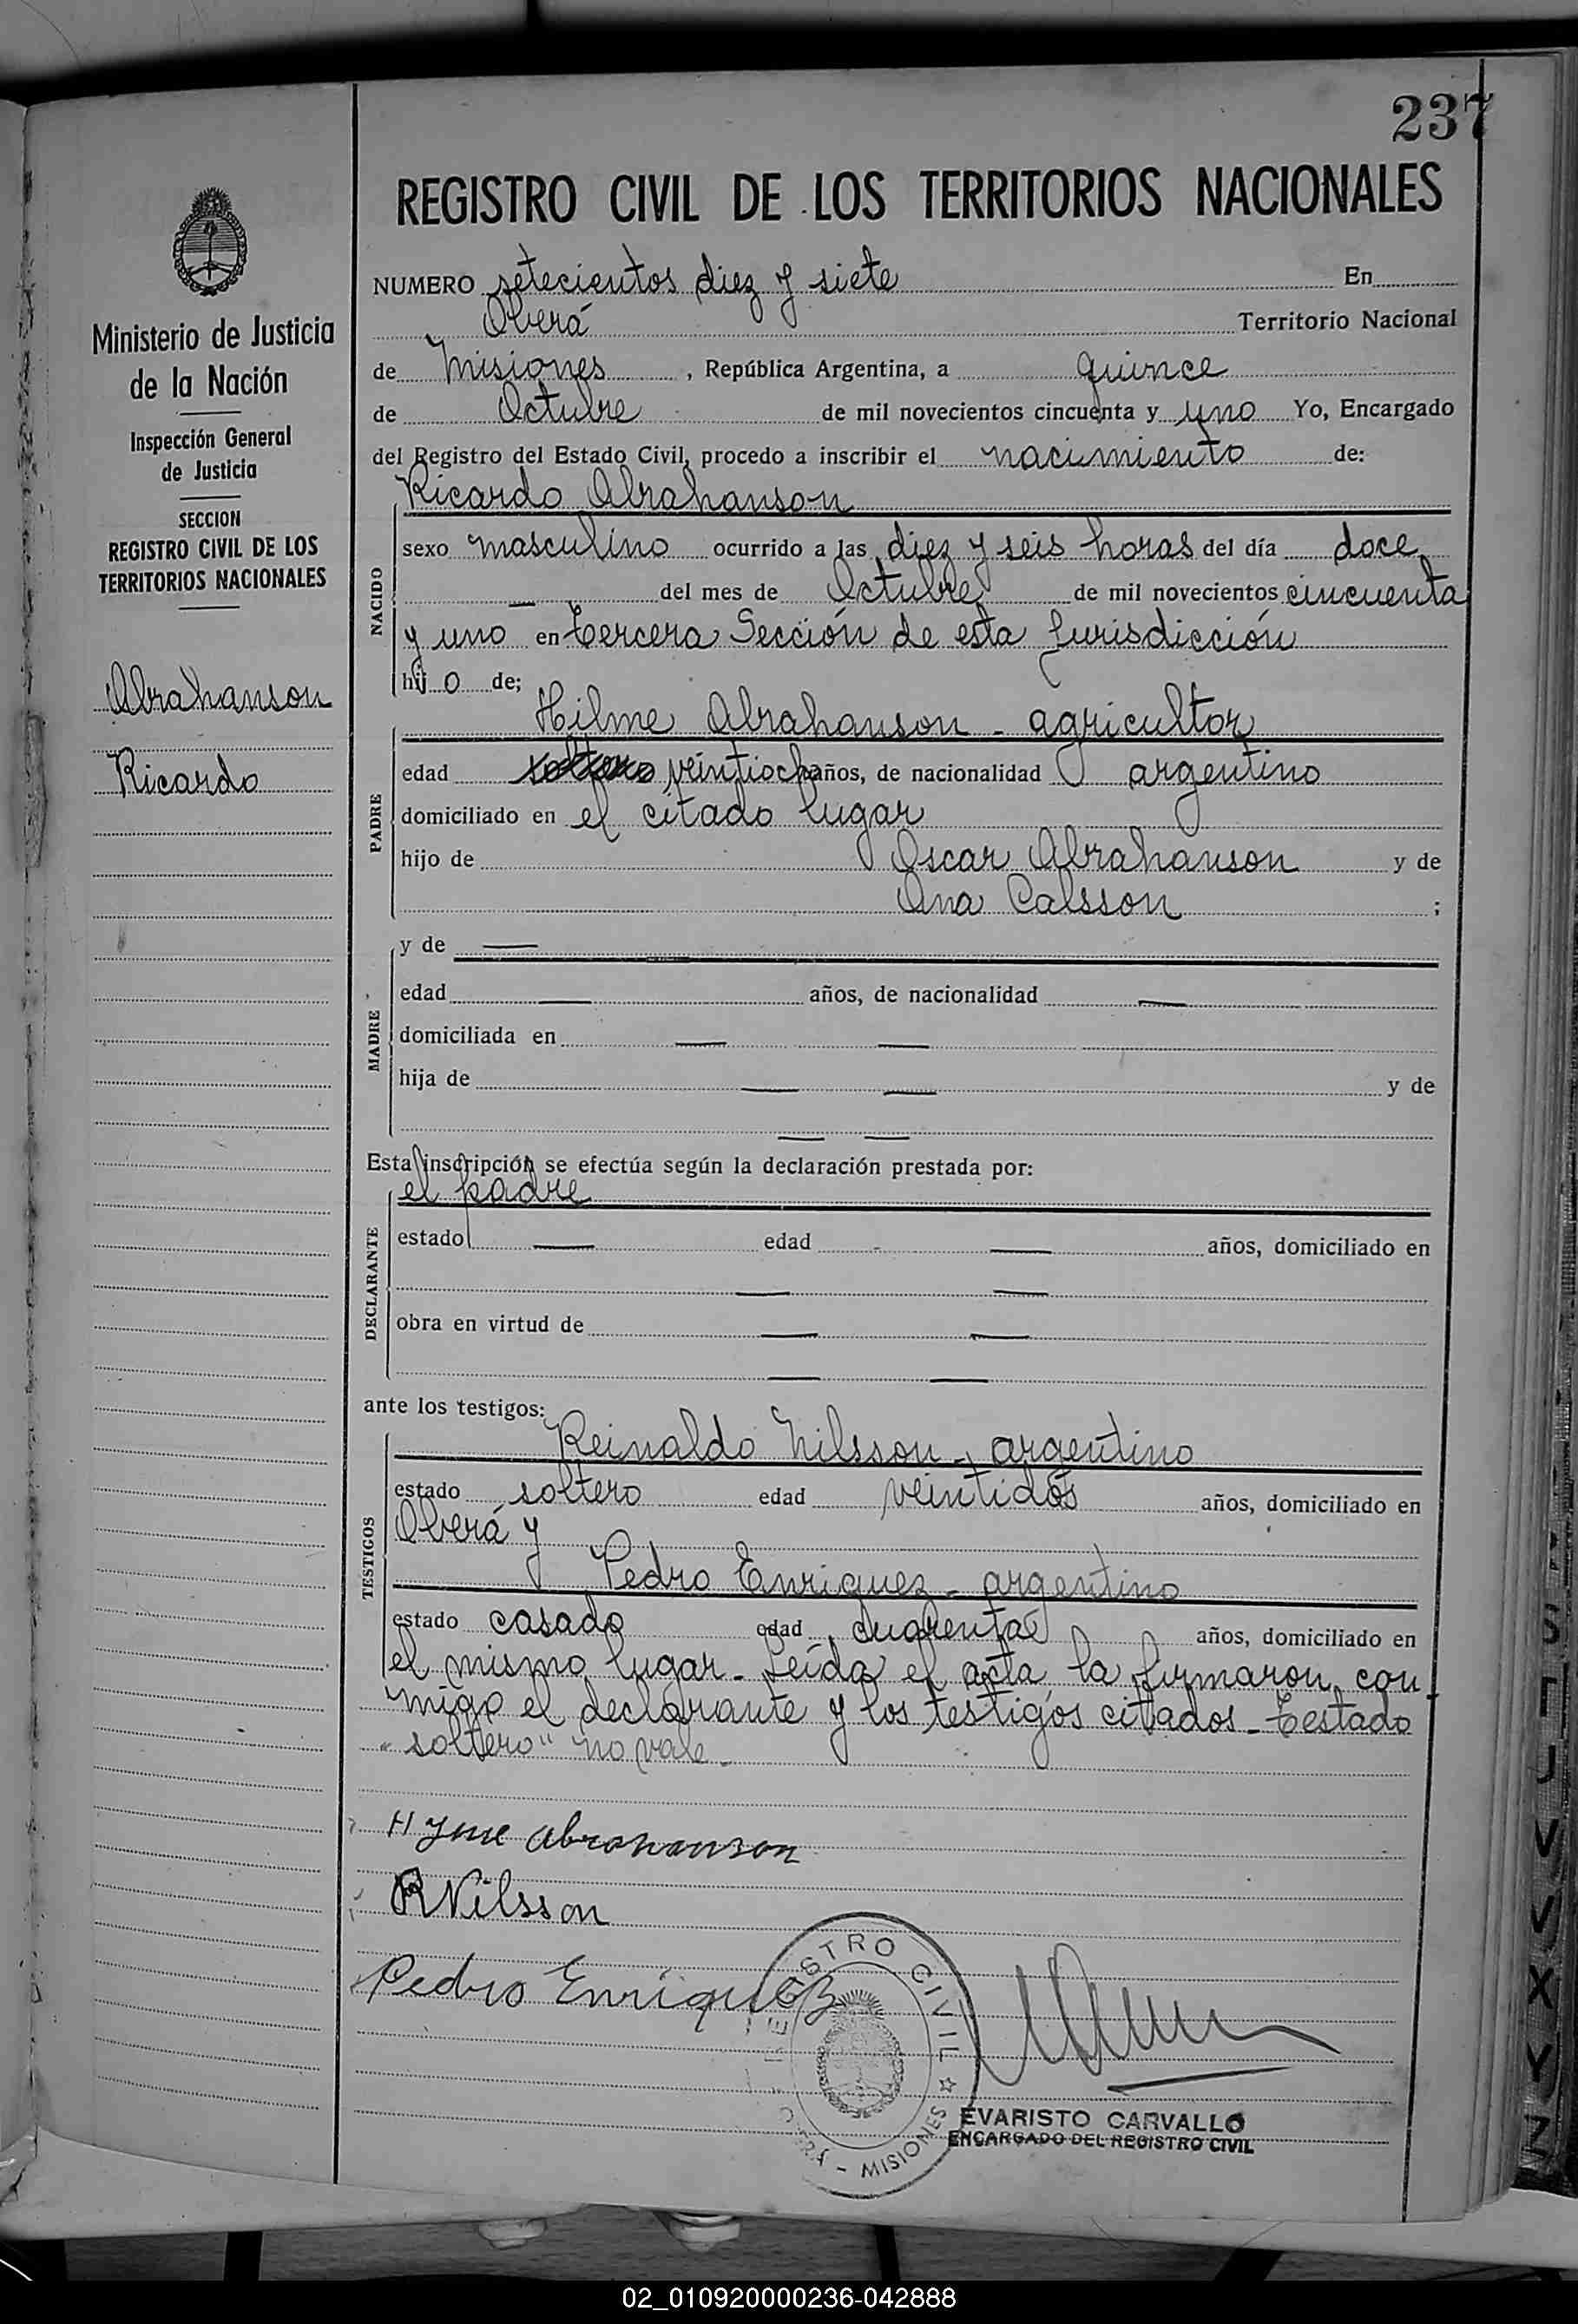 237
REGISTRO CIVIL DE LOS TERRITORIOS NACIONALES
Ministerio de Justicia
de la Nación
Inspección General
de Justicia
SECCION
REGISTRO CIVIL DE LOS
TERRITORIOS NACIONALES
Abrahanson
Ricardo
NUMERO setecientos diez y siete En
Oberá Territorio Nacional
de Misiones, República Argentina, a quince
de Octubre de mil novecientos cincuenta y uno Yo, Encargado
del Registro del Estado Civil, procedo a inscribir el nacimiento de:
Ricardo Abrahanson
NACIDO
sexo masculino ocurrido a las diez y seis horas del día doce
— del mes de Octubre de mil novecientos cincuenta
y uno en tercera Sección de esta Jurisdicción
hijo de;
PADRE
Hilme Abrahanson - agricultor
edad soltero veintiocho años, de nacionalidad argentino
domiciliado en el citado lugar
hijo de Oscar Abrahanson y de
Ana Calsson ;
MADRE
y de —
edad — años, de nacionalidad —
domiciliada en — —
hija de — — y de
— —
Esta inscripción se efectúa según la declaración prestada por:
DECLARANTE
el padre
estado — edad — años, domiciliado en
— —
obra en virtud de — —
— —
ante los testigos:
TESTIGOS
Reinaldo Nilsson - argentino
estado soltero edad veintidos años, domiciliado en
Oberá y
Pedro Enriquez - argentino
estado casado edad cuarenta años, domiciliado en
el mismo lugar - Leída el acta la firmaron con-
migo el declarante y los testigos citados - Testado
"soltero" no vale -
Hyme Abrahanson
R Nilsson
Pedro Enriquez
REGISTRO CIVIL ☆
OBERA - MISIONES
EVARISTO CARVALLO
ENCARGADO DEL REGISTRO CIVIL
S
T
J
V
V
X
Y
Z
02_010920000236-042888